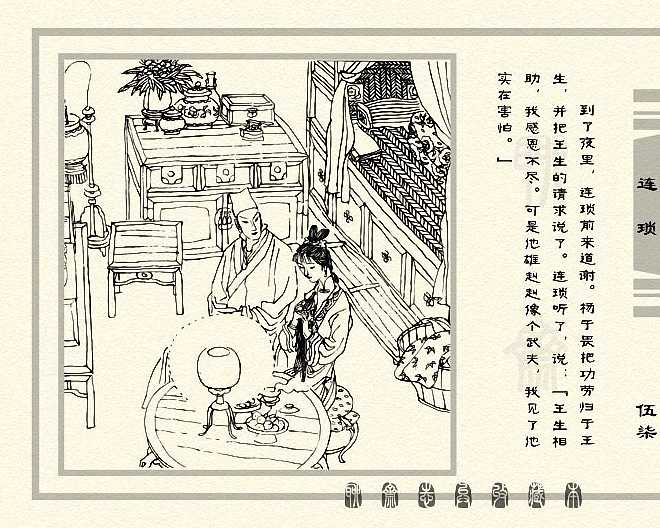 到了夜里，连琐前来道谢。杨于畏把功劳归于王
生，并把王生的请求说了。连琐听了，说：「王生相
助，我感恩不尽。可是他雄赳赳像个武夫，我见了他
实在害怕。」
连琐
伍柒
聊斋志异收藏本